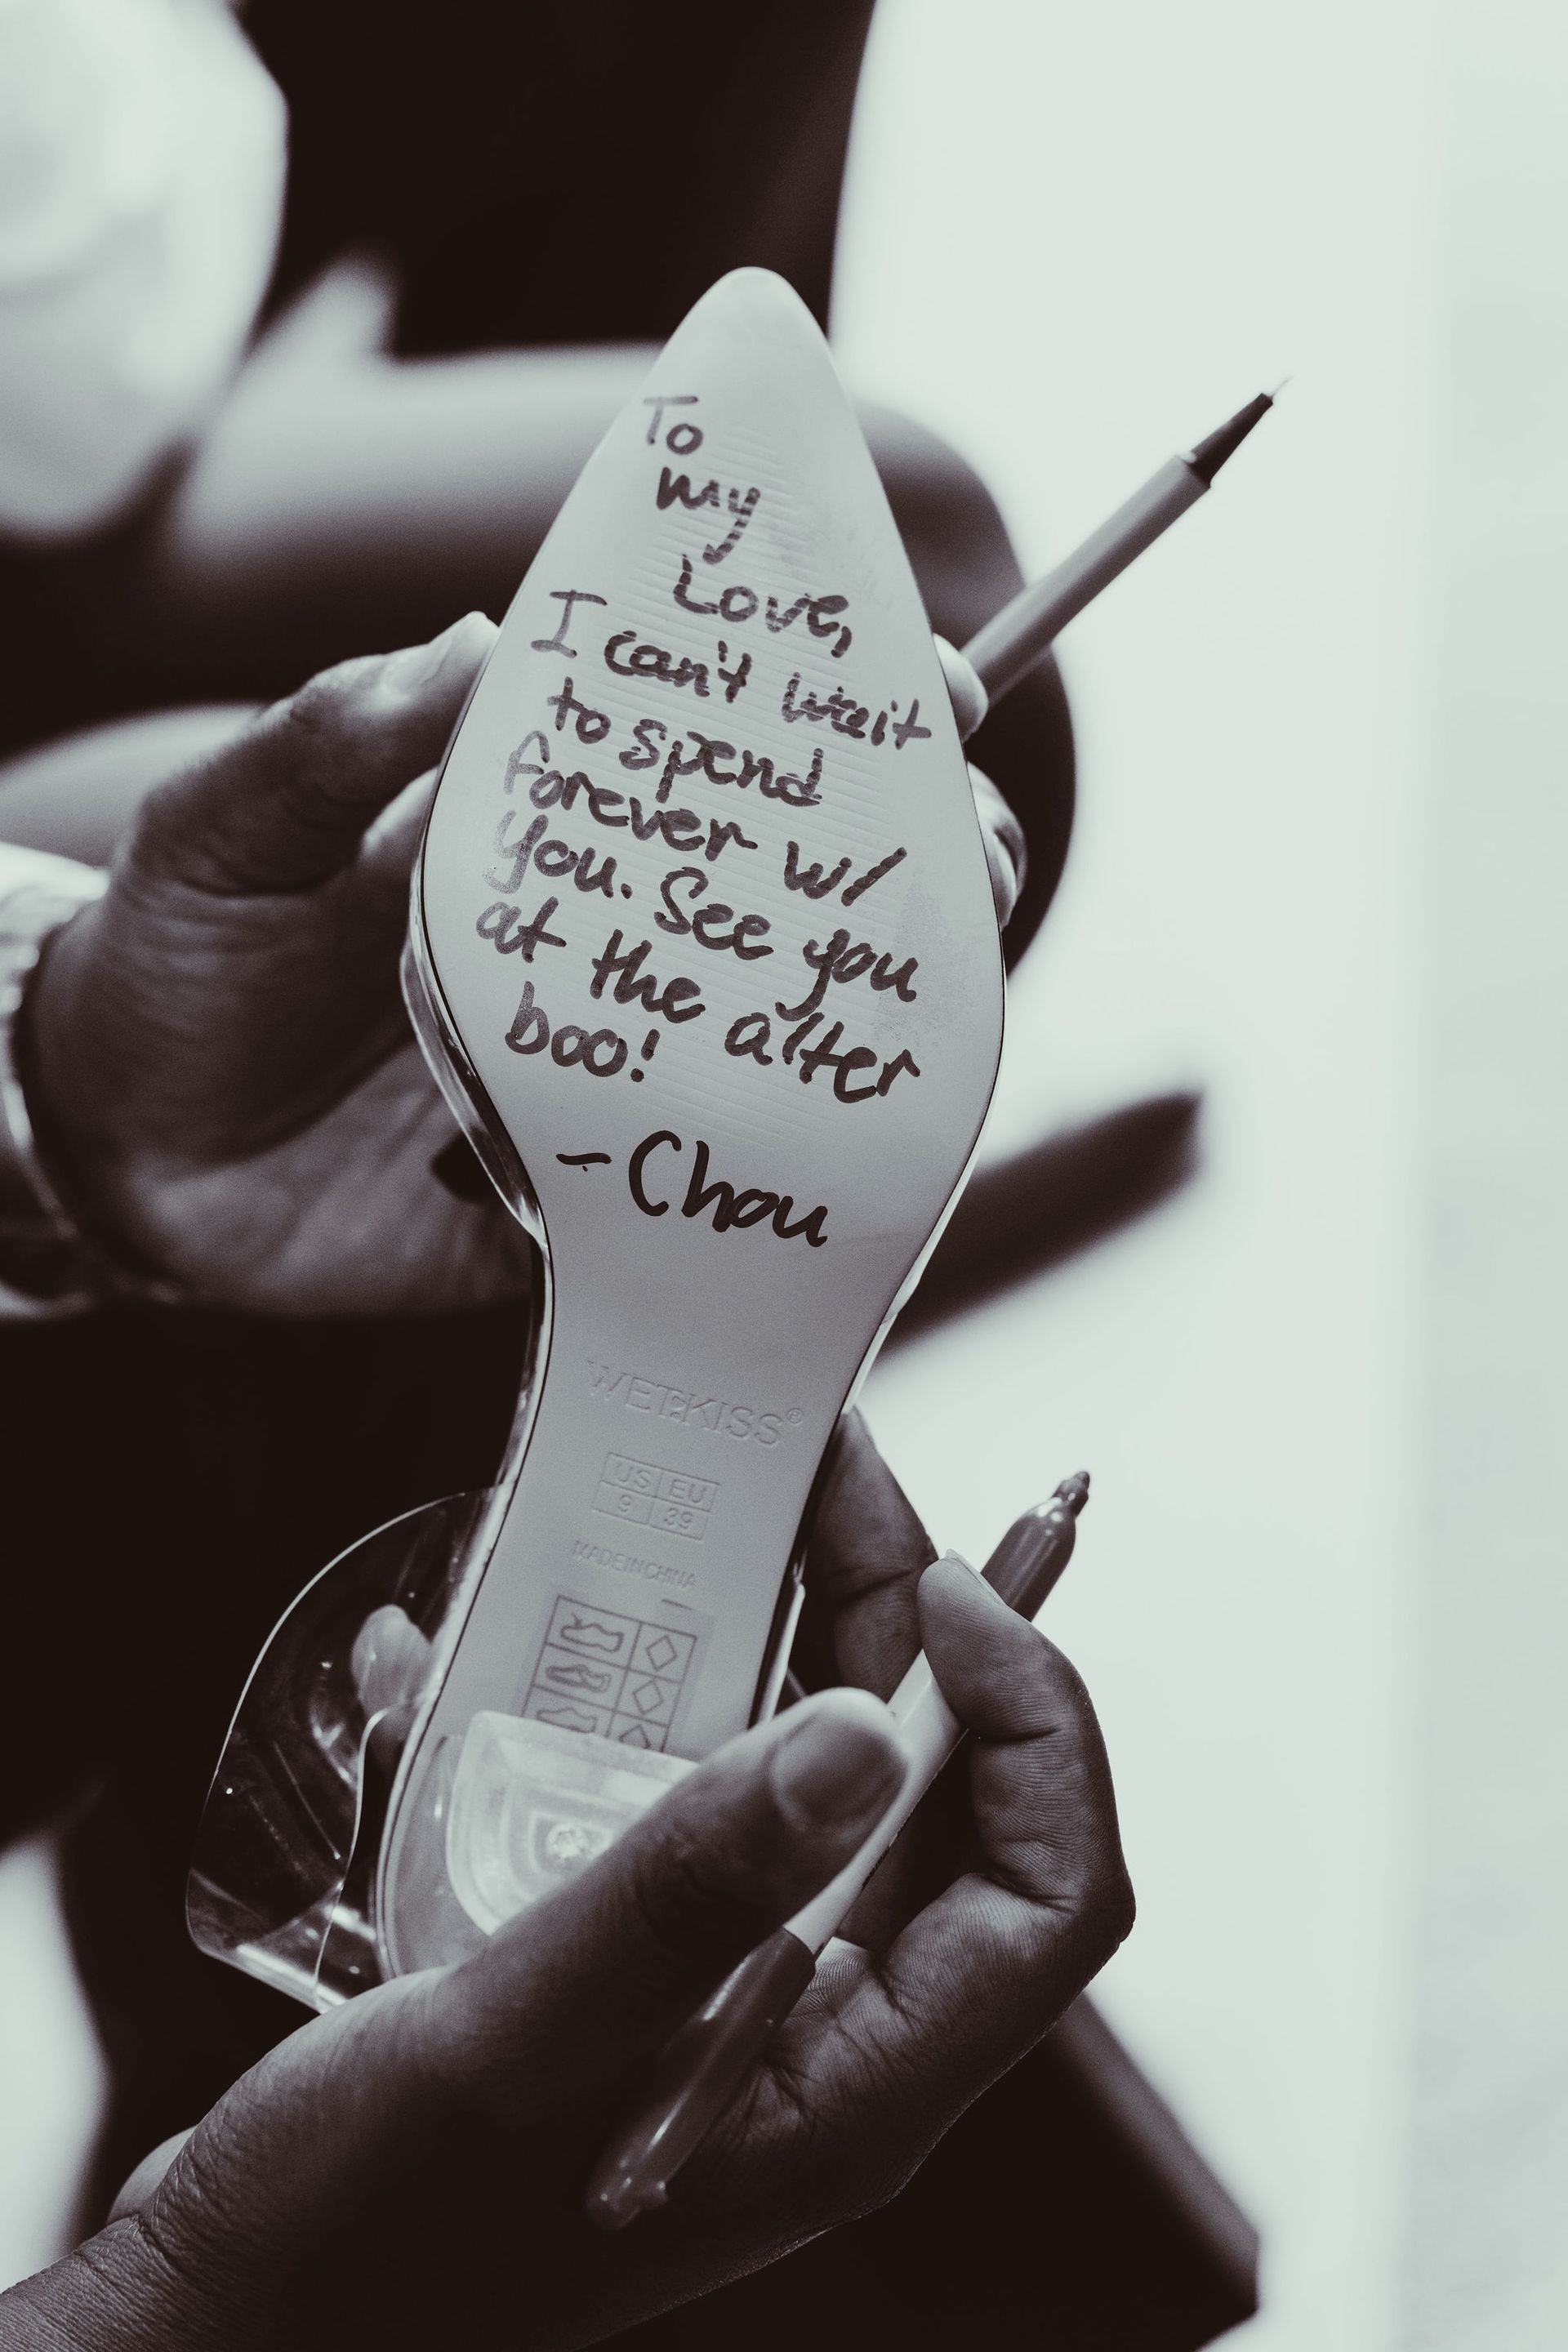 To
my
Love,
I can't wait
to spend
forever w/
you. See you
at the alter
boo!
- Chou
WETKISS®
US EU
9 39
MADE IN CHINA